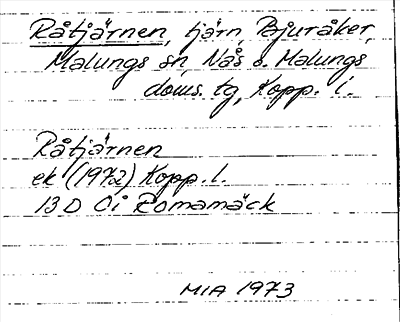 Råtjärnen, tjärn, Bjuråker,
Malungs sn, Nås o. Malungs
doms. tg, Kopp. l.
Råtjärnen
ek (1972) Kopp. l.
13 D Ci Romamäck
MIA 1973